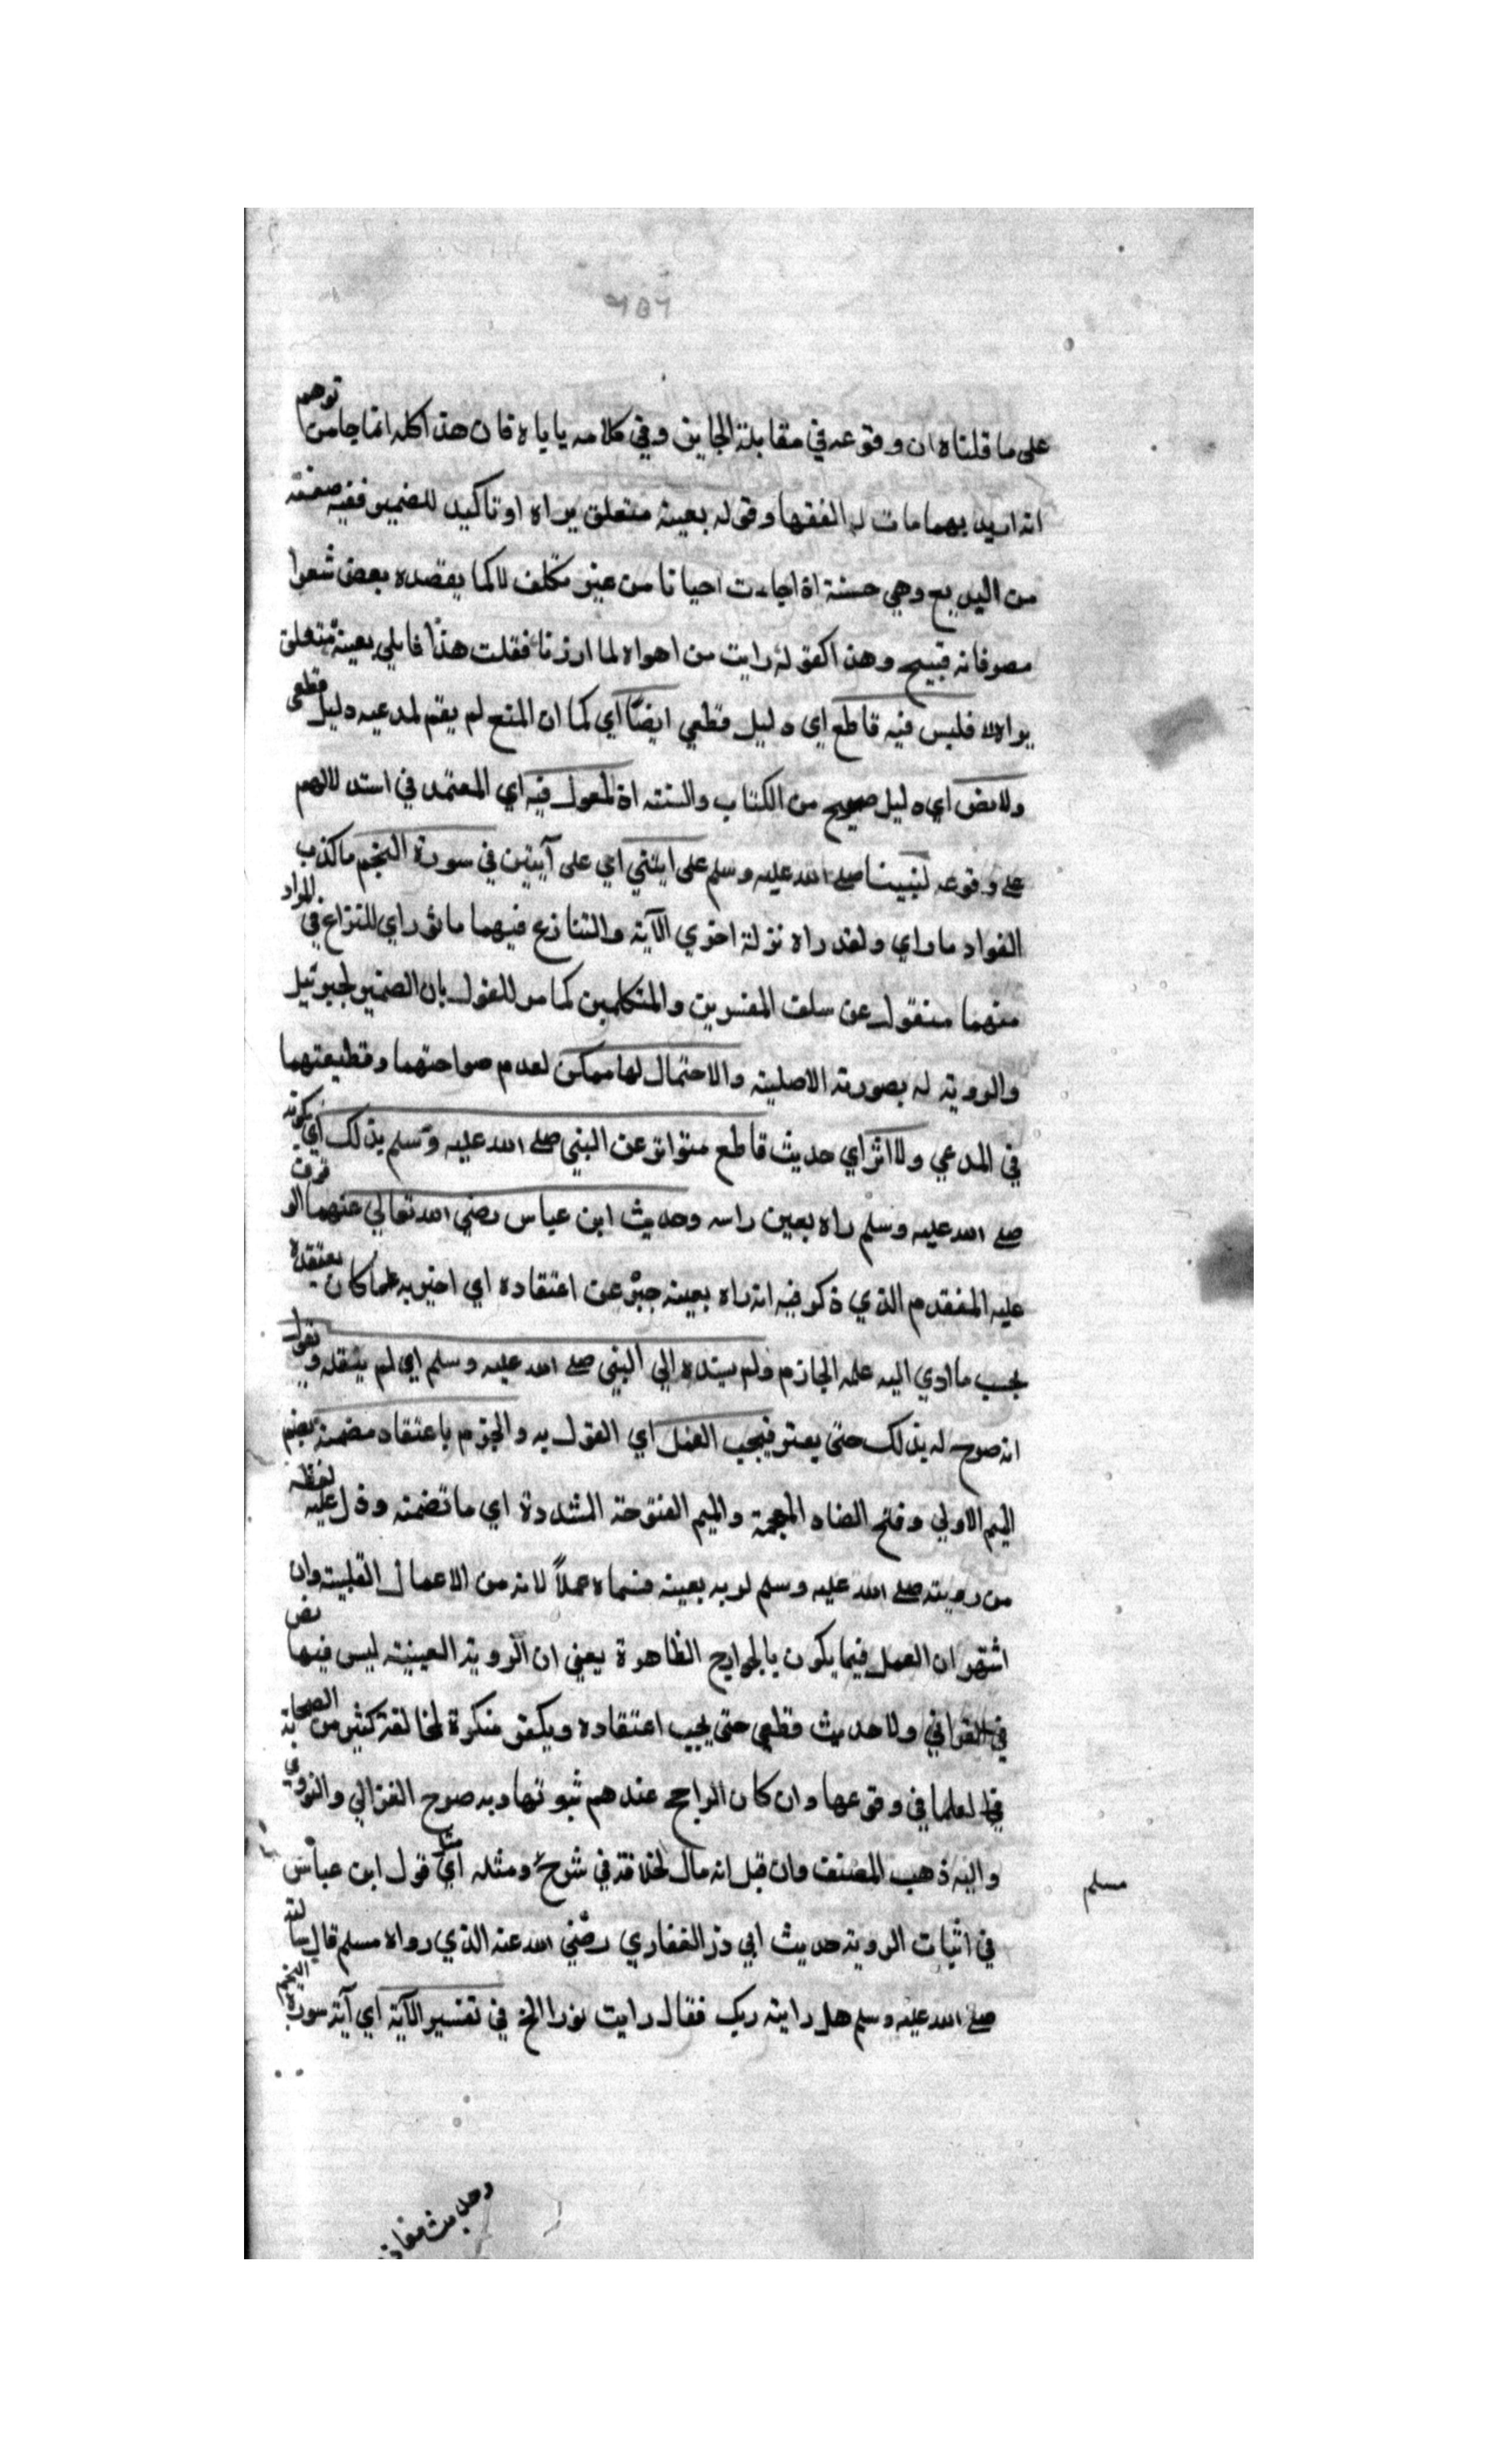 على ما قلناه ان وقوعه في مقابلة الجايز وفي كلامه ياباه فان هذا كله انما جا من توهم
انه اريد بهما ما قاله الفقها وقوله بعينه متعلق براه او تاكيد للضمير ففيه صنعته
من البديع وهي حسنة اذا جاءت احيانا من غير تكلف لا كما يقصده بعض شعرا
مصر فانه قبيح وهذا كقوله رايت من اهواه لما ارزنا فقلت هذا قابلي بعينه متعلق
براه فليس فيه قاطع اي دليل قطعي ايضا اي كما ان المنع لم يقم لمدعيه دليل قطعي
ولا نص اي دليل صحيح من الكتاب والسنة اذ المعول فيه اي المعتمد في استدلالهم
على وقوعه لنبينا صلى الله عليه وسلم على ايتي اي على آيتين في سورة النجم ما كذب
الفواد ما راي ولقد راه نزلة اخري الآية والتنازع فيهما ماثور اي للنزاع في المراد
منهما منقول عن سلف المفسرين والمتكلمين كما مر للقول بان الضمير لجبرئيل
والروية له بصورته الاصلية والاحتمال لها ممكن لعدم صراحتهما وقطيعتهما
في المدعي ولا اثر اي حديث قاطع متواتر عن النبي صلى الله عليه وسلم بذلك اي بكونه
صلى الله عليه وسلم راه بعين راسه وحديث ابن عباس رضي الله تعالي عنهما الموقوف
عليه المتقدم الذي ذكر فيه انه راه بعينه خبر عن اعتقاده اي اخبر به عما كان يعتقده
بحسب ما ادي اليه علمه الجازم ولم يسنده الي النبي صلى الله عليه وسلم اي لم ينقله ويقول
انه صرح له بذلك حتى يعتبر فيجب العمل اي القول به والجزم باعتقاد مضمنه بضم
الميم الاولي وفتح الضاد المعجمة والميم المفتوحة المشددة اي ما تضمنه ودل عليه لفظه
من رويته صلى الله عليه وسلم لربه بعينه فسماه عملاً لانه من الاعمال القلبية وان
اشتهر ان العمل فيما يكون بالجوارح الظاهرة يعني ان الروية العينية ليس فيها نص
في القراني ولا حديث قطعي حتى يجب اعتقاده ويكفر منكره لمخالفة كثير من الصحابة
في العلما في وقوعها وان كان الراجح عندهم ثبوتها وبه صرح الغزالي والنووي
واليه ذهب المصنف وان قيل انه مال لخلافه في شرح ومثله اي مثل قول ابن عباس
مسلم
في اثبات الروية حديث ابي ذر الغفاري رضي الله عنه الذي رواه مسلم قال سالته
صلى الله عليه وسلم هل رايته ربك فقال رايت نورا الخ في تفسير الآية اي آية سورة النجم
وحديث معاذ